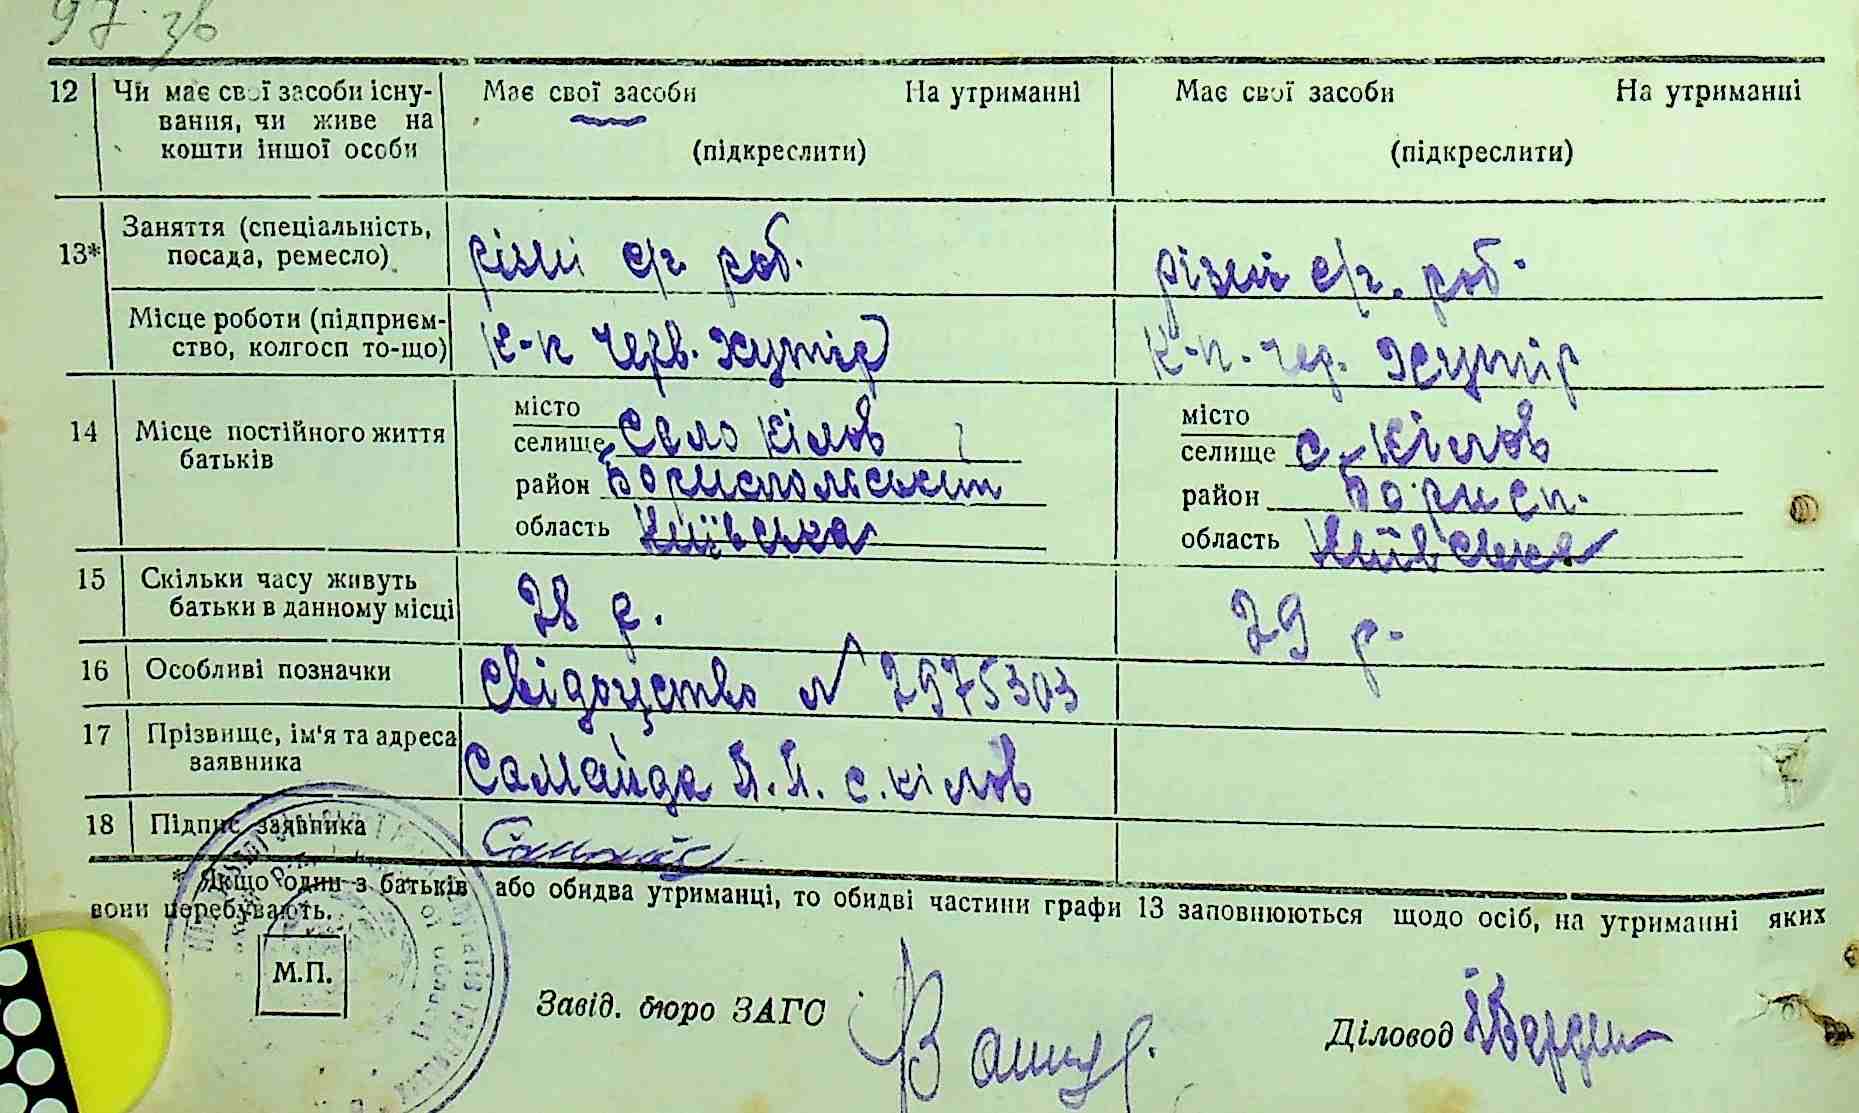 97 зв
12 Чи має свої засоби існу- Має свої засоби На утриманні Має свої засоби На утриманні
вання, чи живе на
кошти іншої особи (підкреслити) (підкреслити)
Заняття (спеціальність,
13* посада, ремесло) різні с/г. роб. різні с/г. роб.
Місце роботи (підприєм-
ство, колгосп то-що) К-п Черв. Хутір К-п. Чер. Хутір
місто місто
14 Місце постійного життя селище село Кілов селище с. Кілов
батьків район Бориспольський район Борисп.
область Київська область Київська
15 Скільки часу живуть
батьки в данному місці 28 р. 29 р.
16 Особливі позначки Свідоцтво № 2975303
17 Прізвище, ім'я та адреса
заявника Самайда П. П. с. Кілов
18 Підпис заявника
* Якщо один з батьків або обидва утриманці, то обидві частини графи 13 заповнюються щодо осіб, на утриманні яких
вони перебувають.
М.П.
Завід. бюро ЗАГС
Діловод